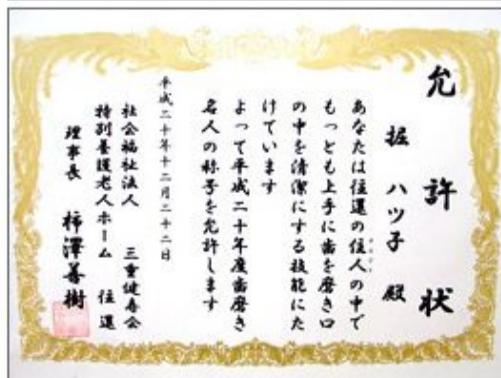 允許状
堀 ハツ子 殿
あなたは往還の住人の中で
もっとも上手に歯を磨き口
の中を清潔にする技能にた
けています
よって平成二十年度歯磨き
名人の称号を允許します
平成二十年十二月二十二日
社会福祉法人 三重健寿会
特別養護老人ホーム 往還
理事長 柿澤善樹